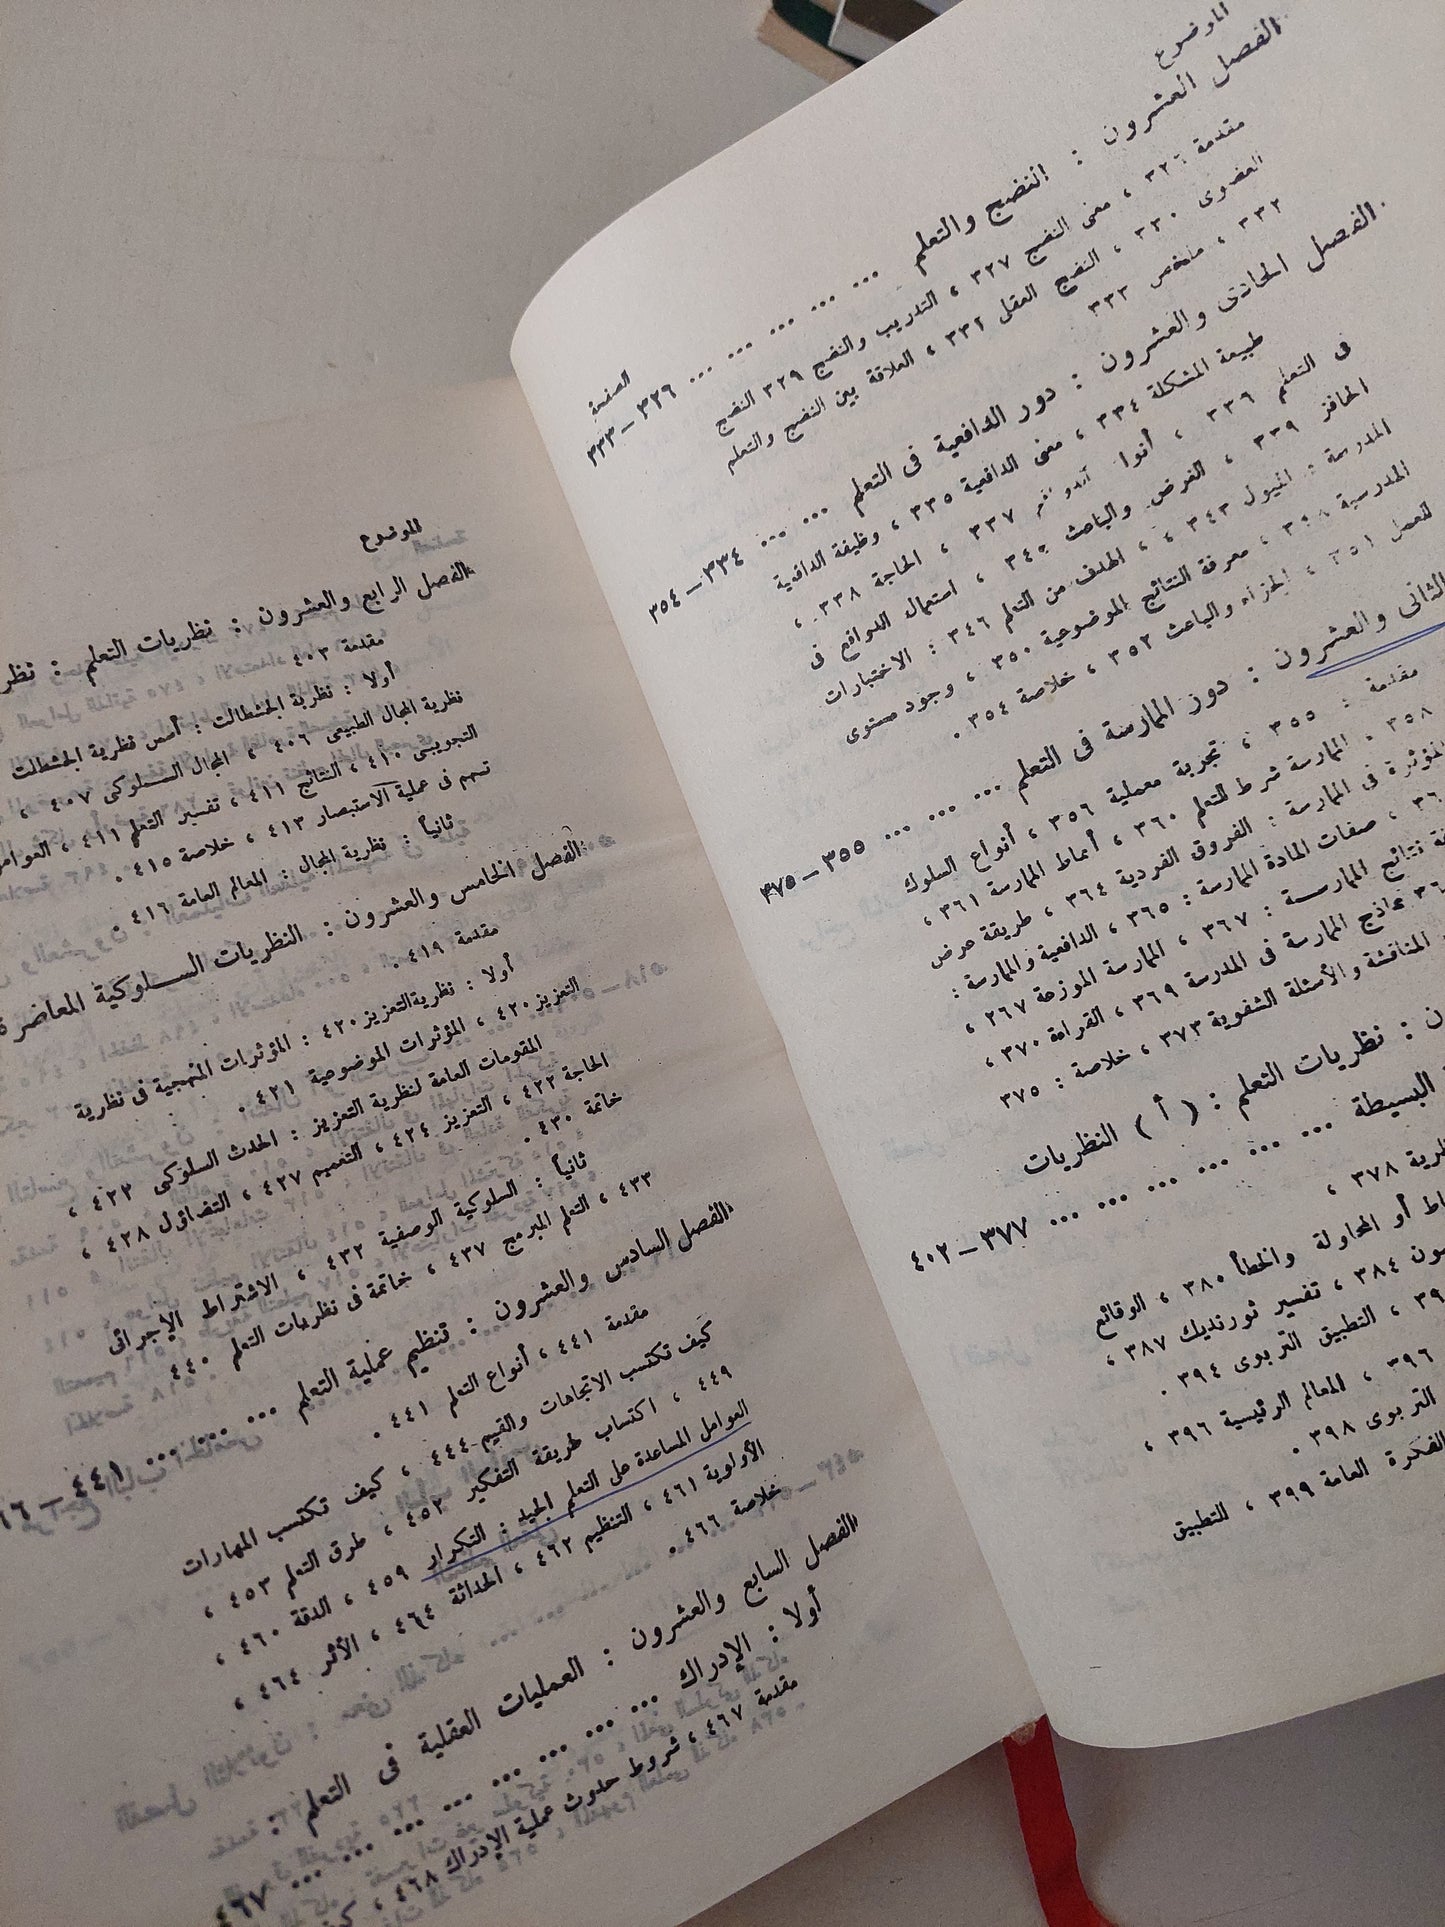 الموضوع
الصفحة
الفصل العشرون : النضج والتعلم ... ... ... ... ... ٣٢٦ – ٣٣٣
مقدمة ٣٢٦ ، معنى النضج ٣٢٧ ، التدريب والنضج ٣٢٩ النضج
العضوى ٣٣٠ ، النضج العقلى ٣٣٢ ، العلاقة بين النضج والتعلم
٣٣٢ ، ملخص ٣٣٣
الفصل الحادى والعشرون : دور الدافعية فى التعلم ... ... ... ٣٣٤ – ٣٥٤
طبيعة المشكلة ٣٣٤ ، معنى الدافعية ٣٣٥ ، وظيفة الدافعية
فى التعلم ٣٣٦ ، أنوا ٣٣٧ ، الحاجة ٣٣٨ ،
الحافز ٣٣٩ ، الغرض والباعث ٣٤٠ ، استعمال الدوافع فى
المدرسة : الميول ٣٤٣ ، الهدف من التعلم ٣٤٦ : الاختبارات
المدرسية ٣٤٨ ، معرفة النتائج الموضوعية ٣٥٠ ، وجود مستوى
للعمل ٣٥١ ، الجزاء والباعث ٣٥٢ ، خلاصة ٣٥٤ .
الثانى والعشرون : دور الممارسة فى التعلم ... ... ... ... ٣٥٥ – ٣٧٥
مقدمة : ٣٥٥ ، تجربة معملية ٣٥٦ ، أنواع السلوك
٣٥٨ . الممارسة شرط للتعلم ٣٦٠ ، أنماط الممارسة ٣٦١ ،
المؤثرة فى الممارسة : الفروق الفردية ٣٦٤ ، طريقة عرض
، صفات المادة الممارسة : ٣٦٥ ، الدافعية والممارسة :
نتائج الممارسة : ٣٦٧ ، الممارسة الموزحة ٢٦٧ ،
نماذج الممارسة فى المدرسة ٣٦٩ ، القراءة ٣٧٠ ،
المناقشة والأسئلة الشفوية ٣٧٣ ، خلاصة : ٣٧٥
: نظريات التعلم : ( أ ) النظريات
البسيطة ... ... ... ... ... ... ٣٧٧ – ٤٠٢
٣٧٨ ،
أو المحاولة والخطأ ٣٨٠ ، الوقائع
٣٨٤ ، تفسير ثورنديك ٣٨٧ ،
، التطبيق التربوى ٣٩٤ .
٣٩٦ ، المعالم الرئيسية ٣٩٦ ،
التربوى ٣٩٨ .
الفكرة العامة ٣٩٩ ، التطبيق
الموضوع
الفصل الرابع والعشرون : نظريات التعلم :
مقدمة ٤٠٣
أولا : نظرية الجشطالت : أسس نظرية الجشطالت
نظرية المجال الطبيعى ٤٠٦ ، المجال السلوكى ٤٠٧ ،
التجريبى ٤١٠ ، النتائج ٤١١ ، تفسير التعلم ٤١١ ،
تسهم فى عملية الاستبصار ٤١٣ ، خلاصة ٤١٥ .
ثانياً : نظرية المجال : المعالم العامة ٤١٦ .
الفصل الخامس والعشرون : النظريات السلوكية المعاصرة
مقدمة ٤١٩ .
أولا : نظرية التعزيز ٤٢٠ : المؤثرات المنهجية فى نظرية
التعزيز ٤٢٠ ، المؤثرات الموضوعية ٤٢١ .
المقومات العامة لنظرية التعزيز : الحدث السلوكى ٤٢٢ ،
الحاجة ٤٢٢ ، التعزيز ٤٢٤ ، التعميم ٤٢٧ ، التضاؤل ٤٢٨ ،
خاتمة ٤٣٠ .
ثانياً : السلوكية الوصفية ٤٣٢ ، الاشتراط الإجرائى
٤٣٣ ، التعلم المبرمج ٤٣٧ ، خاتمة فى نظريات التعلم ٤٤٠
الفصل السادس والعشرون : تنظيم عملية التعلم ... ... ... ... ٤٤١ –
مقدمة ٤٤١ ، أنواع التعلم ٤٤١ .
كيف تكتسب الاتجاهات والقيم ٤٤٤ ، كيف تكتسب المهارات
٤٤٩ ، اكتساب طريقة التفكير ٤٥٢ ، طرق التعلم ٤٥٣ ،
العوامل المساعدة على التعلم الجيد : التكرار ٤٥٩ ، الدقة ٤٦٠ ،
الأولوية ٤٦١ ، التنظيم ٤٦٢ ، الحداثة ٤٦٤ ، الأثر ٤٦٤ ،
خلاصة ٤٦٦ .
الفصل السابع والعشرون : العمليات العقلية فى التعلم :
أولا : الإدراك ... ... ... ... ... ... ... ٤٦٧
مقدمة ٤٦٧ ، شروط حدوث عملية الإدراك ٤٦٨ ،